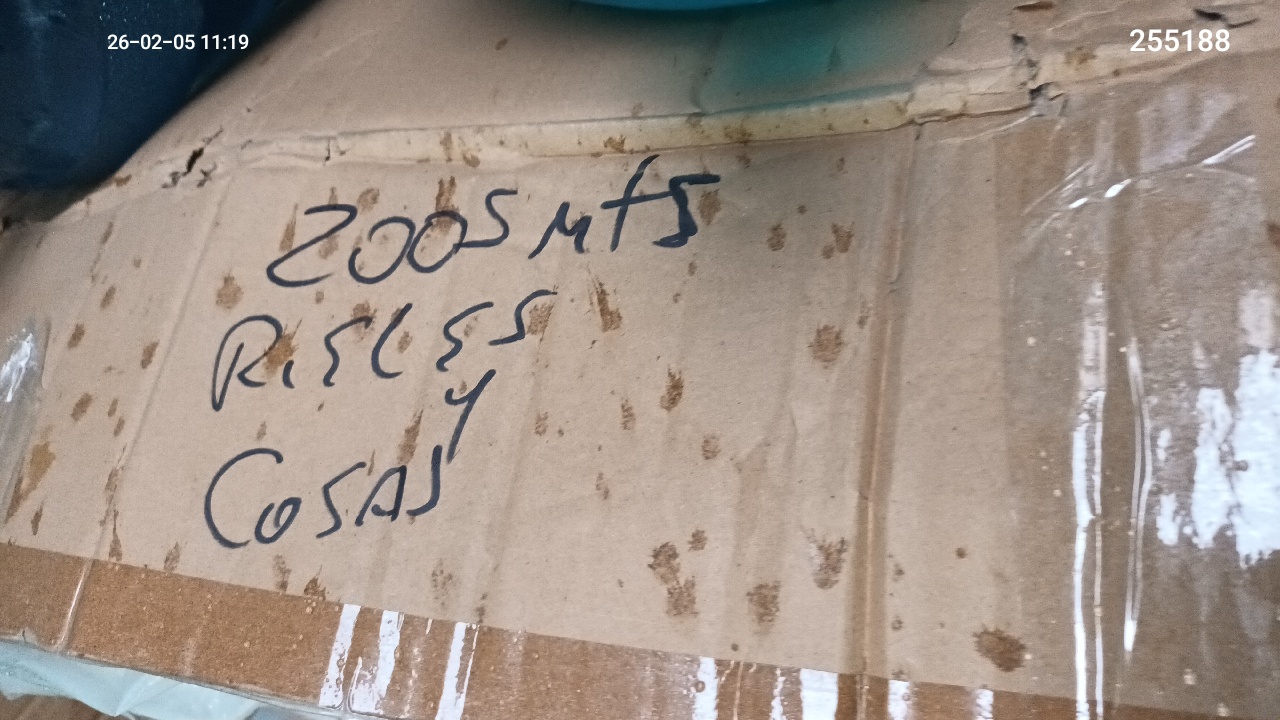 26-02-05 11:19
255188
2005 Mts
RiELES
y
COSAS